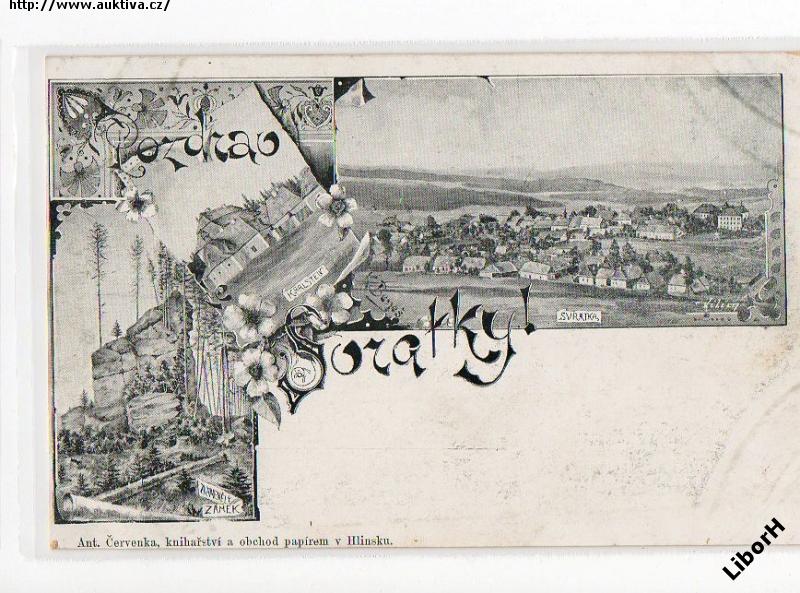 http://www.auktiva.cz/
Pozdrav
KARLŠTEJN
Svratky!
SVRATKA.
ZÁMEK
Ant. Červenka, knihařství a obchod papírem v Hlinsku.
LiborH